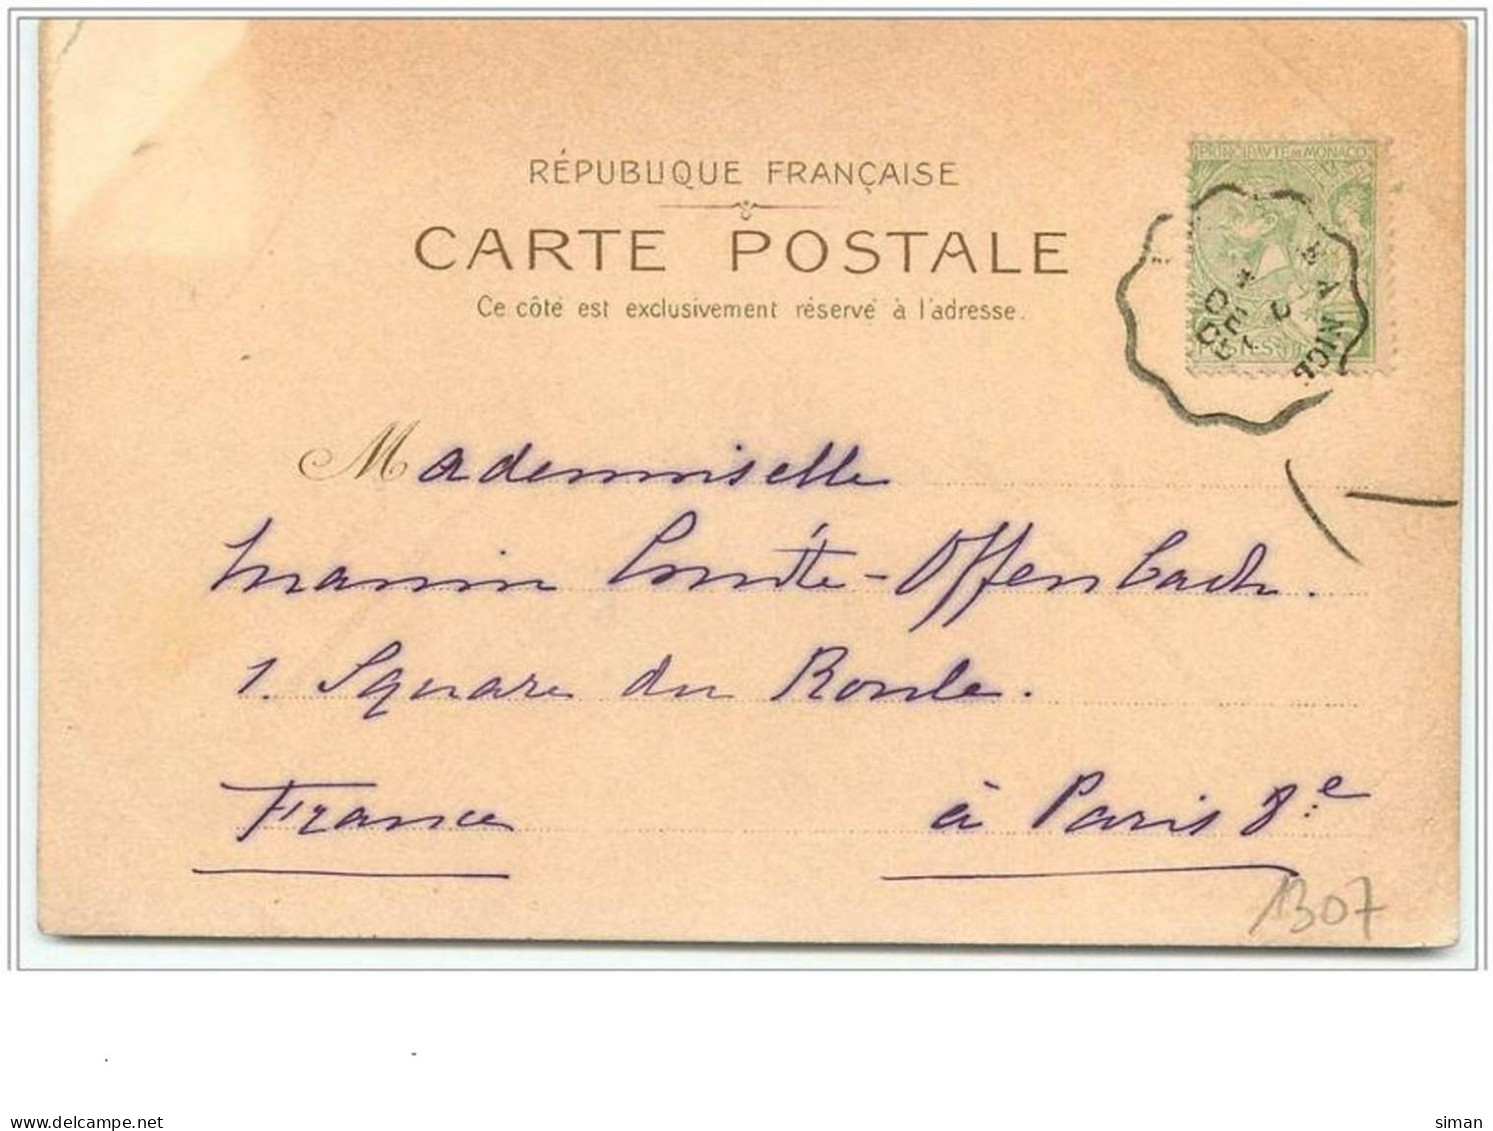 PRINCIPAVTE DE MONACO
RÉPUBLIQUE FRANÇAISE
CARTE POSTALE
Ce côté est exclusivement réservé à l'adresse.
A NICE
POSTES
Mademoiselle
Comte-Offenbach.
1. Square du Roule.
France à Paris 8e
1307
delcampe.net
siman